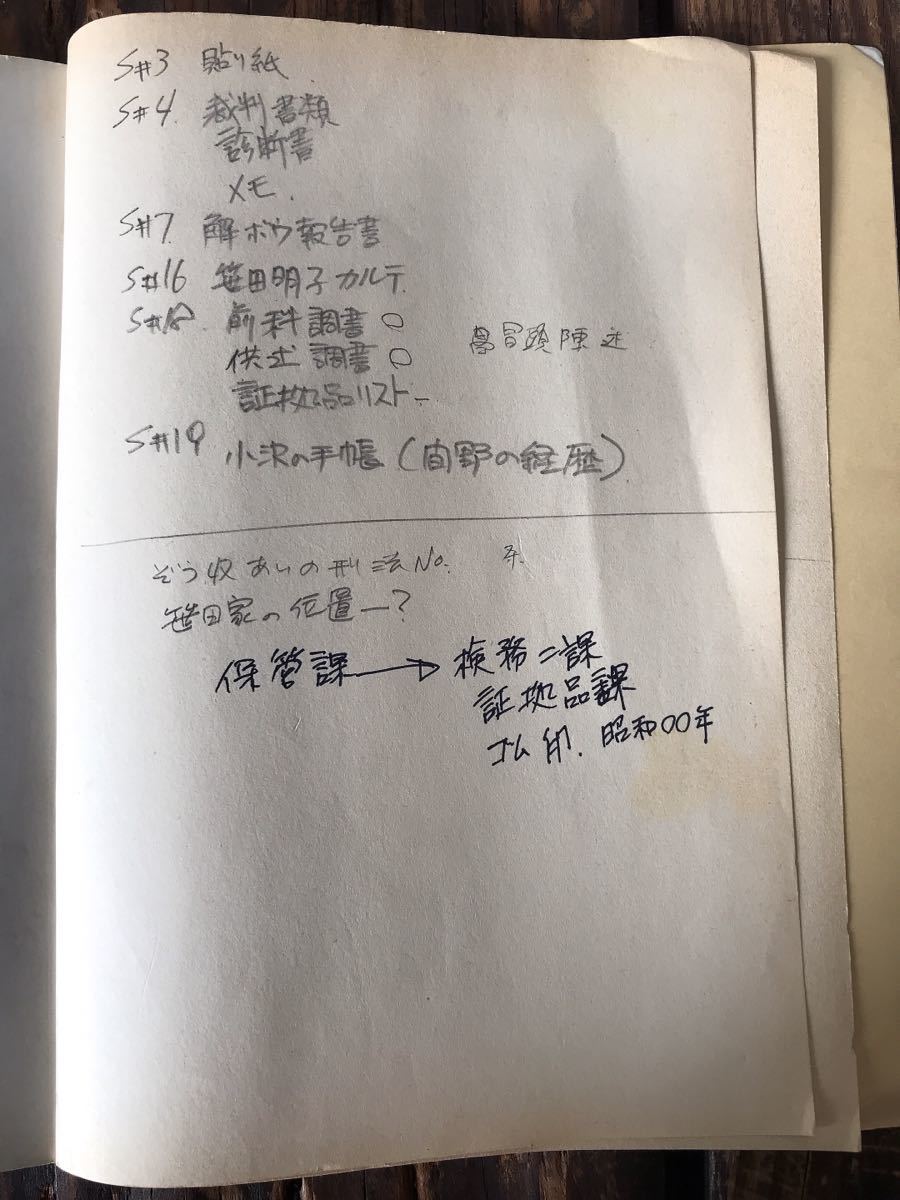 S#3 貼り紙
S#4. 裁判書類
診断書
メモ.
S#7. 解ボウ報告書
S#16 笹田明子カルテ
S#18. 前科調書○
供述調書○ 冒頭陳述
証拠品リスト
S#19 小沢の手帳(間野の経歴)
ぞう収あいの刑法No. 条
笹田家の位置—?
保管課→検務二課
証拠品課
ゴム印. 昭和00年